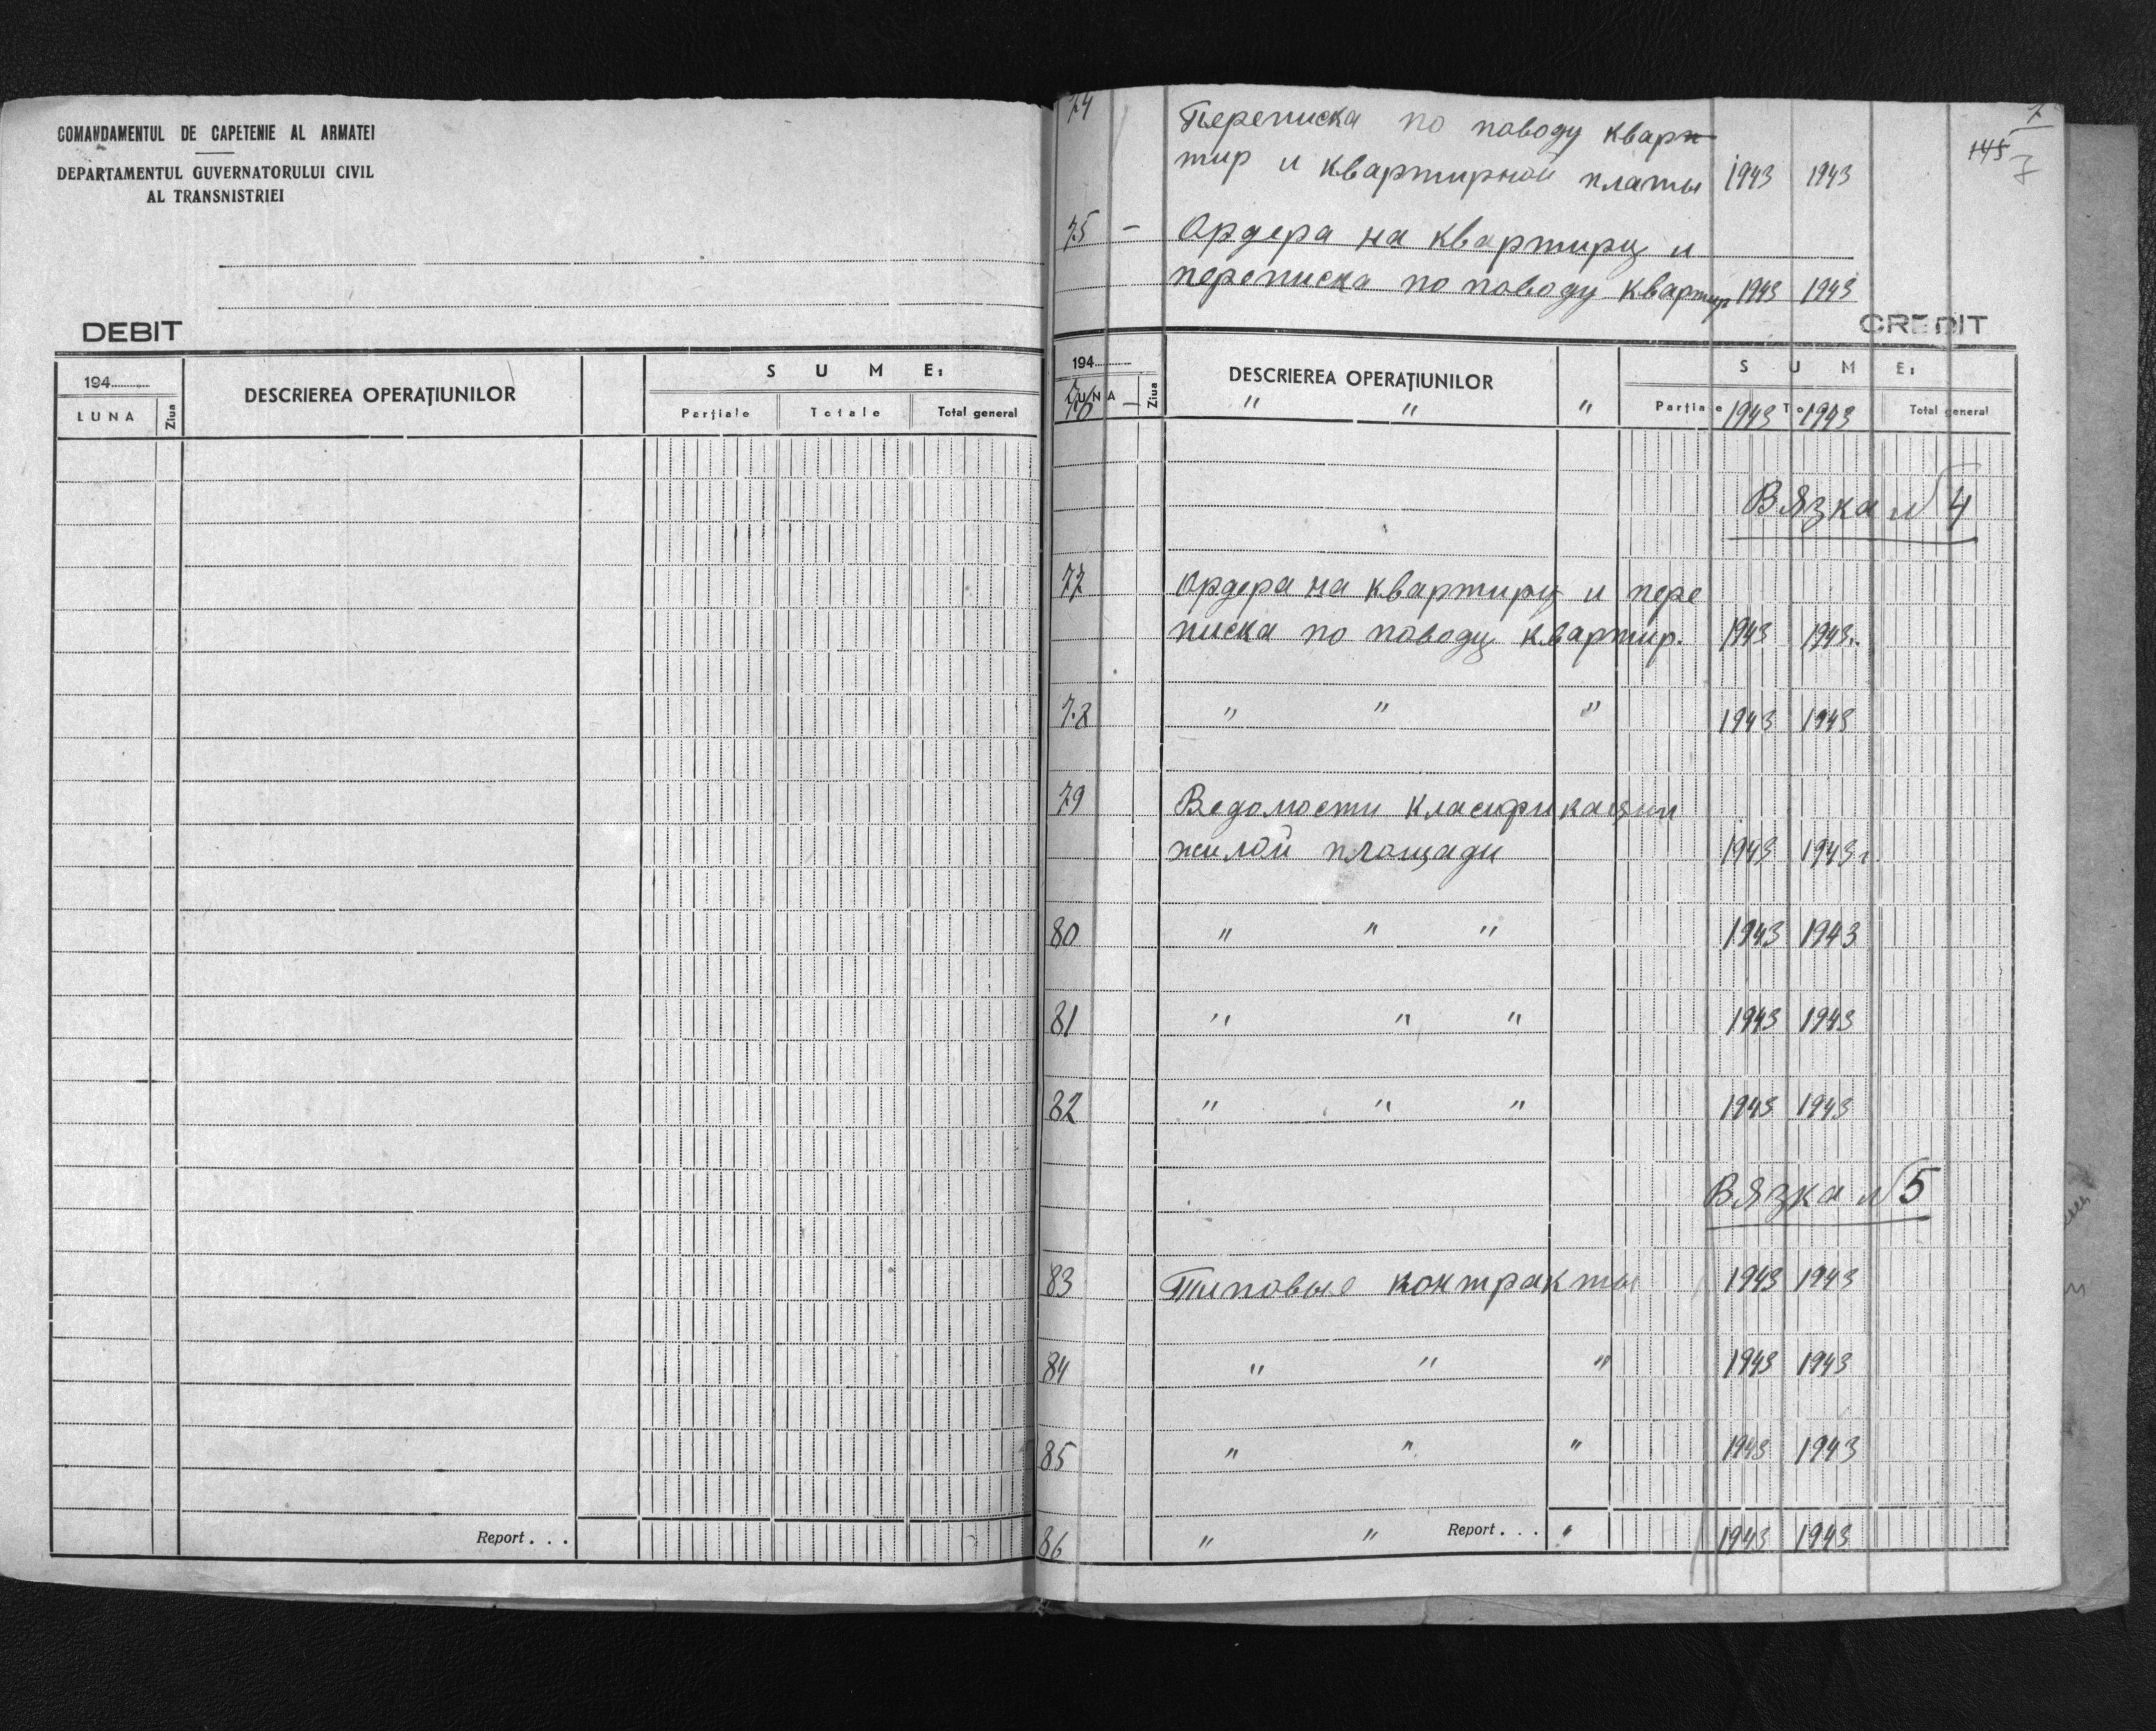 COMANDAMENTUL DE CAPETENIE AL ARMATEI
DEPARTAMENTUL GUVERNATORULUI CIVIL
AL TRANSNISTRIEI
DEBIT
194
LUNA
Ziua
DESCRIEREA OPERAȚIUNILOR
SUME:
Parțiale
Totale
Total general
Report . . .
7
145
7
74 Переписка по поводу квар
тир и квартирной платы 1943 1943
75 - Ордера на квартиры и
переписка по поводу квартир 1943 1943
CREDIT
194
LUNA
Ziua
DESCRIEREA OPERAȚIUNILOR
SUME:
Parțiale
Total general
76 - " " " 1943 1943
Вязка № 4
77 Ордера на квартиры и пере
писка по поводу квартир. 1943 1943г.
78 " " " 1943 1943
79 Ведомости класификации
жилой площади 1943 1943г.
80 " " " 1943 1943
81 " " " 1943 1943
82 " " " 1943 1943
Вязка № 5
83 Типовые контракты 1943 1943
84 " " " 1943 1943
85 " " " 1943 1943
86 " " Report . . . " 1943 1943